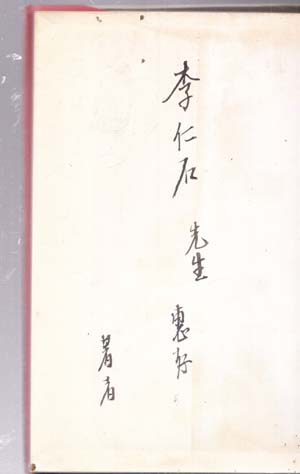 李仁石 先生 惠存
著者